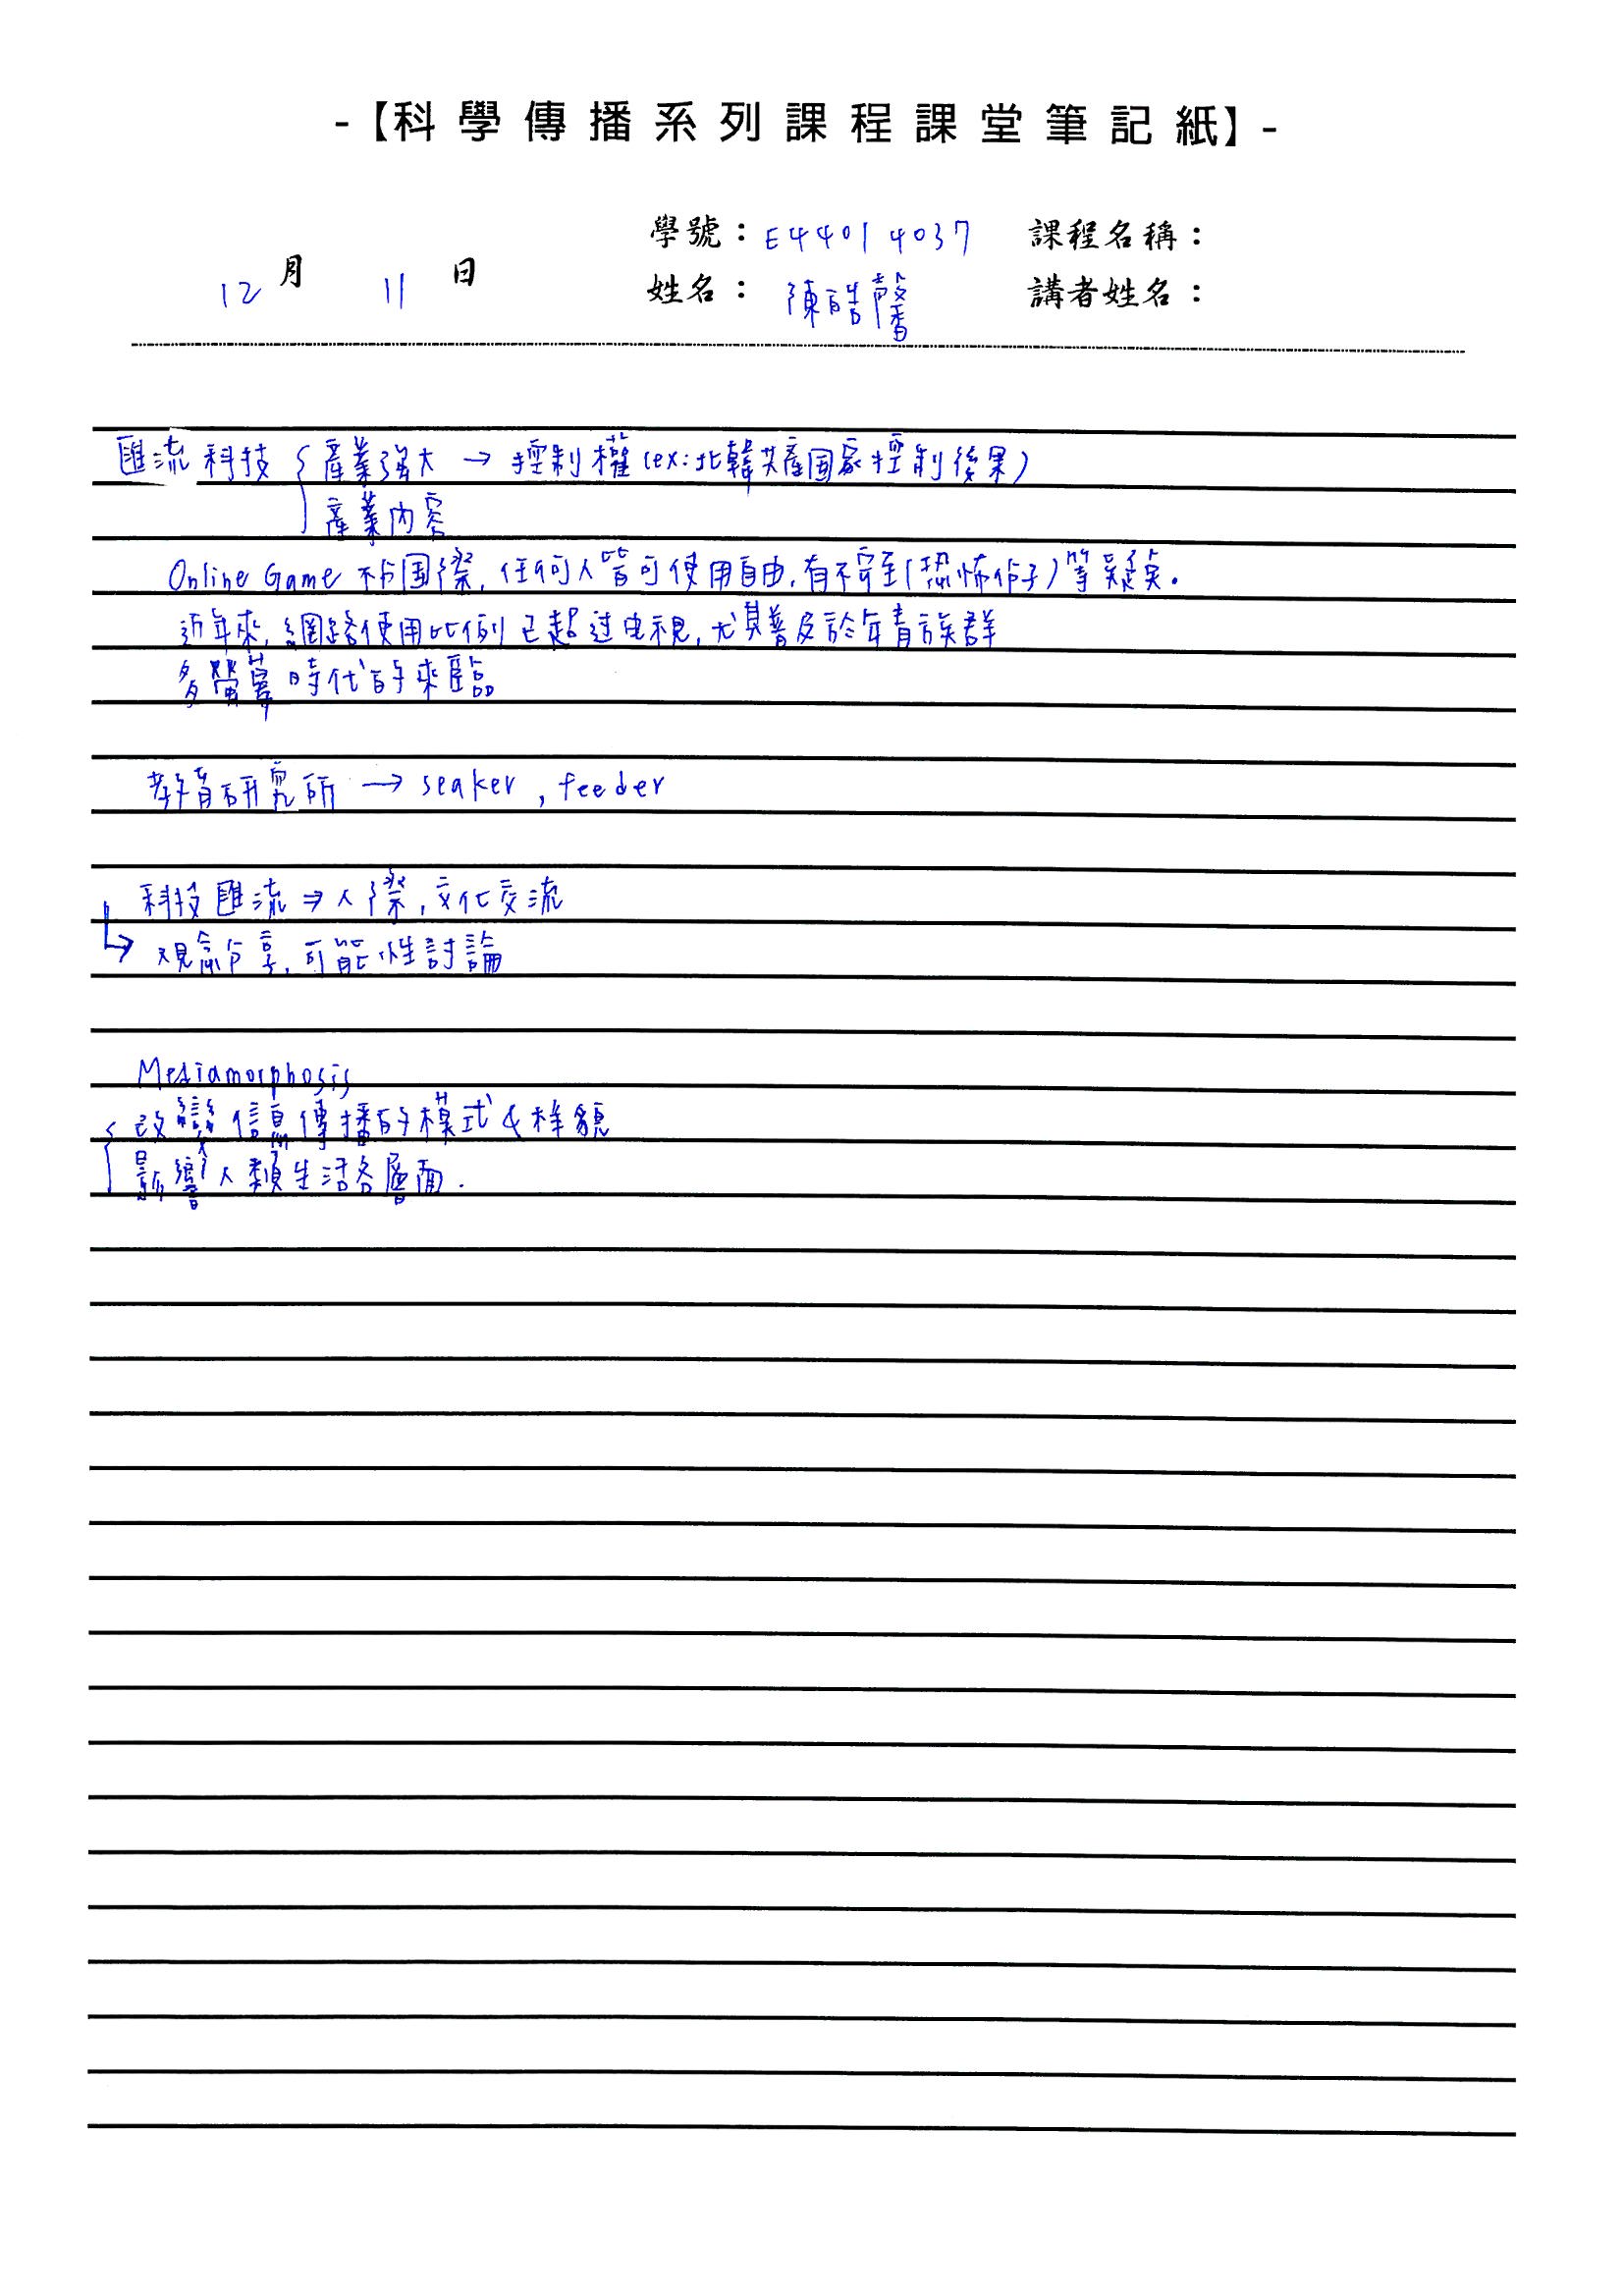 -【科學傳播系列課程課堂筆記紙】-
學號：E44014037 課程名稱：
12月 11日
姓名：陳皓馨 講者姓名：
匯流科技 { 產業強大 → 控制權 (ex:北韓共產国家控制後果)
產業內容
Online Game 不分国際, 任何人皆可使用自由, 有不甯至(恐怖份子)等疑矣.
近年來, 網路使用比例已超过电視, 尤其普及於年青族群
多螢幕時代的來臨
教育研究所 → seaker, feeder
科技匯流 ⇒ 人際, 文化交流
↳ 观念分享, 可能性討論
Mediamorphosis
{ 改變信息傳播的模式&样貌
影響人類生活各層面.